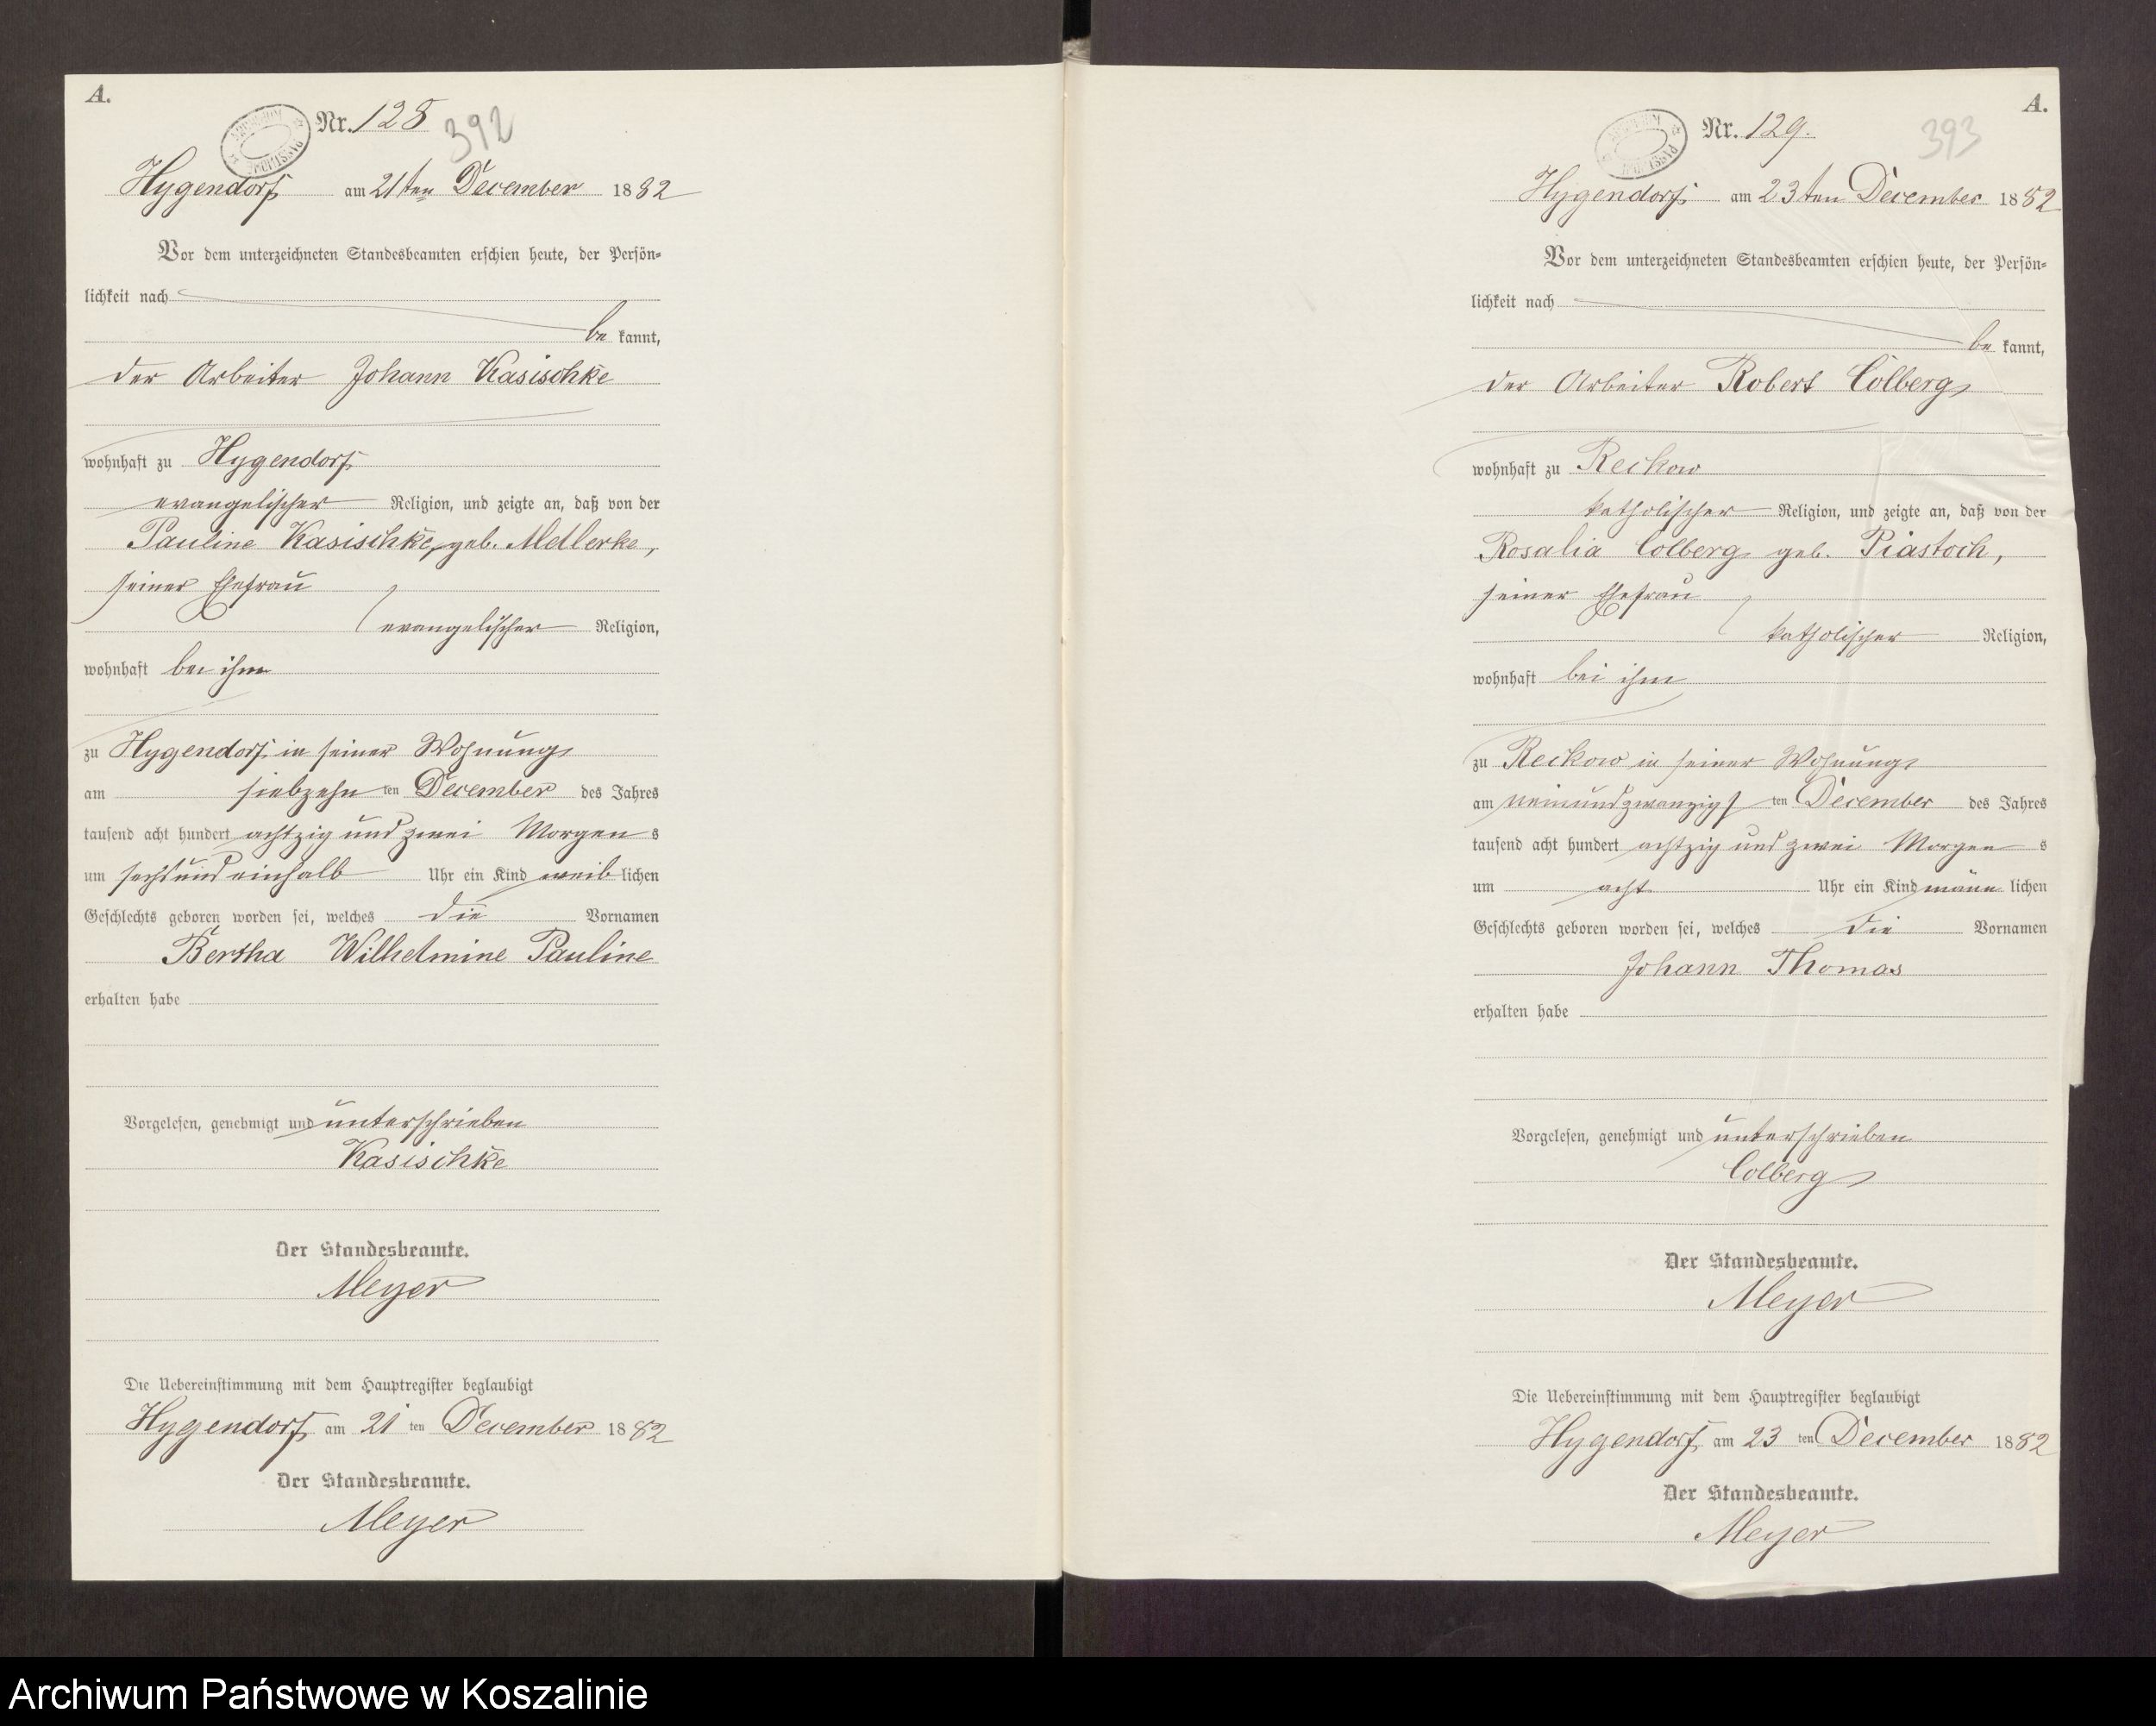 A.
Nr. 128
392
Hygendorf am 21ten December 1882
Vor dem unterzeichneten Standesbeamten erschien heute, der Persön-
lichkeit nach
be kannt,
der Arbeiter Johann Kasischke
wohnhaft zu Hygendorf
evangelischer Religion, und zeigte an, daß von der
Pauline Kasischke, geb. Mellerke,
seiner Ehefrau
evangelischer Religion,
wohnhaft bei ihm
zu Hygendorf in seiner Wohnung
am siebzehn ten December des Jahres
tausend acht hundert achtzig und zwei Morgen s
um sechs und einhalb Uhr ein Kind weib lichen
Geschlechts geboren worden sei, welches die Vornamen
Bertha Wilhelmine Pauline
erhalten habe
Vorgelesen, genehmigt und unterschrieben
Kasischke
Der Standesbeamte.
Meyer
Die Uebereinstimmung mit dem Hauptregister beglaubigt
Hygendorf am 21 ten December 1882
Der Standesbeamte.
Meyer
A.
Nr. 129.
393
Hygendorf am 23ten December 1882
Vor dem unterzeichneten Standesbeamten erschien heute, der Persön-
lichkeit nach
be kannt,
der Arbeiter Robert Colberg
wohnhaft zu Reckow
katholischer Religion, und zeigte an, daß von der
Rosalia Colberg geb. Piastoch,
seiner Ehefrau
katholischer Religion,
wohnhaft bei ihm
zu Reckow in seiner Wohnung
am neinundzwanzigs ten December des Jahres
tausend acht hundert achtzig und zwei Morgen s
um acht Uhr ein Kind männ lichen
Geschlechts geboren worden sei, welches die Vornamen
Johann Thomas
erhalten habe
Vorgelesen, genehmigt und unterschrieben
Colberg
Der Standesbeamte.
Meyer
Die Uebereinstimmung mit dem Hauptregister beglaubigt
Hygendorf am 23 ten December 1882
Der Standesbeamte.
Meyer
Archiwum Państwowe w Koszalinie